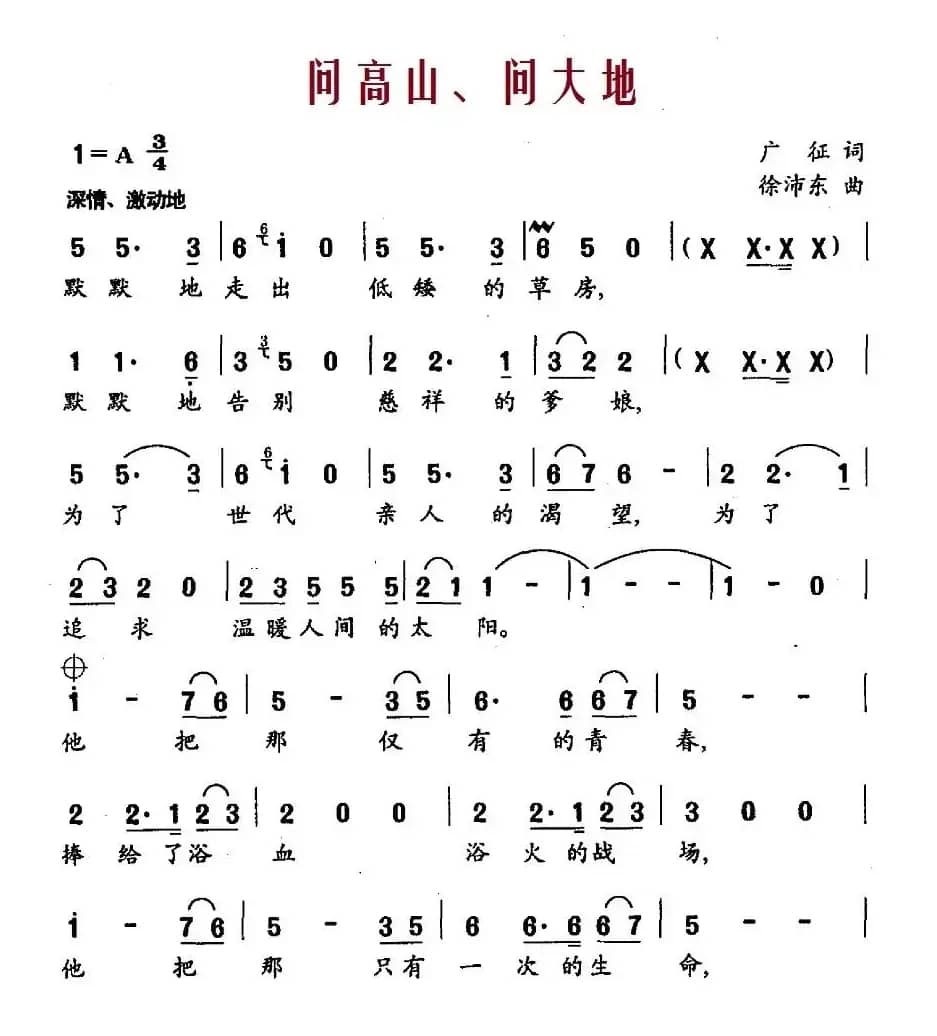 问高山、问大地
1=A 3/4
广 征 词
深情、激动地
徐沛东 曲
5 5· 3 | 6 6 i 0 | 5 5· 3 | 6 5 0 | (X X·X X) |
默 默 地 走 出 低 矮 的 草 房,
1 1· 6 | 3 3 5 0 | 2 2· 1 | 3 2 2 | (X X·X X) |
默 默 地 告 别 慈 祥 的 爹 娘,
5 5· 3 | 6 6 i 0 | 5 5· 3 | 6 7 6 - | 2 2· 1 |
为 了 世 代 亲 人 的 渴 望, 为 了
2 3 2 0 | 2 3 5 5 5 | 2 1 1 - | 1 - - | 1 - 0 |
追 求 温 暖 人 间 的 太 阳。
i - 7 6 | 5 - 3 5 | 6· 6 6 7 | 5 - - |
他 把 那 仅 有 的 青 春,
2 2· 1 2 3 | 2 0 0 | 2 2· 1 2 3 | 3 0 0 |
捧 给 了 浴 血 浴 火 的 战 场,
i - 7 6 | 5 - 3 5 | 6 6· 6 6 7 | 5 - - |
他 把 那 只 有 一 次 的 生 命,